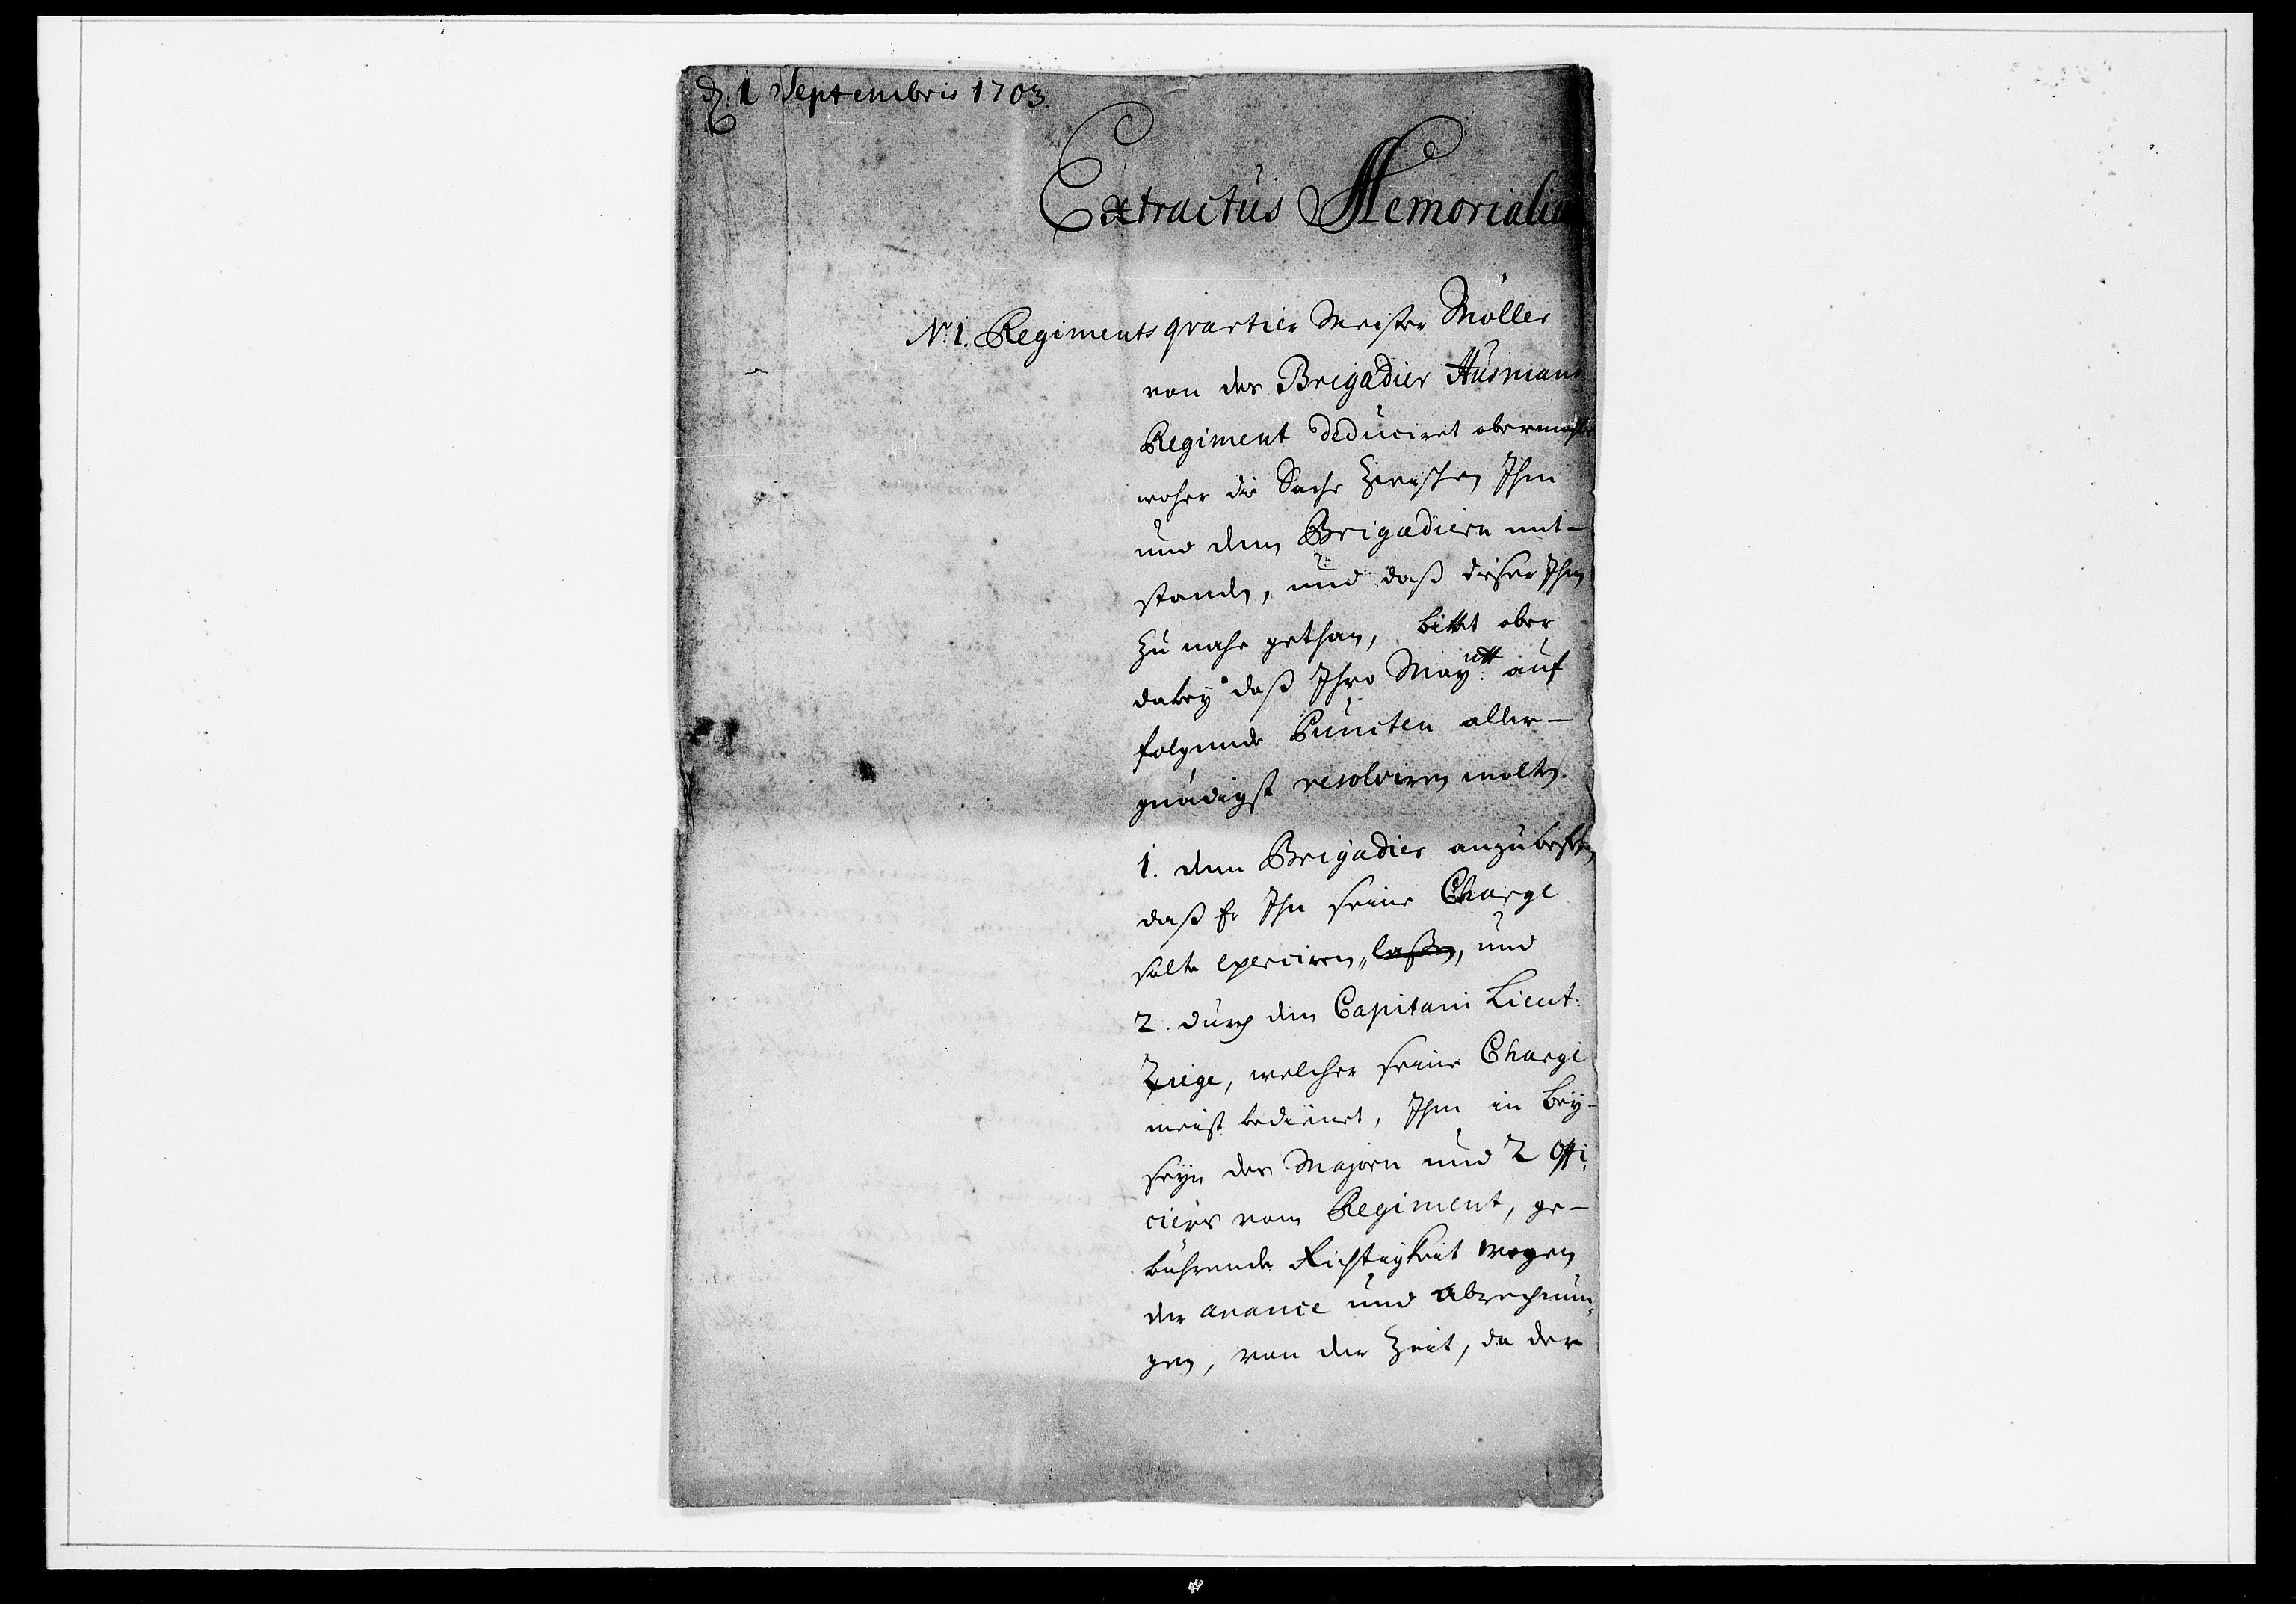 d. 1 Septembris 1703.
Extractus Memorialiu
No. 1. Regiments quartier Meister Möller
von des Brigadier Husmans
Regiment deduciret abermahls
woher die Sache zwischen Ihm
und dem Brigadiern ent-
standen, und daß dieser Ihm
zu nahe gethan, bittet aber
dabey daß Ihro Maytt auf
folgende Puncten aller-
gnädigst resolviren wolten.
1. dem Brigadier anzubefehlen
daß Er Ihn seine Charge
solte exerciren laßen, und
2. durch den Capitain Lieut:
Ziege, welcher seine Charge
meist bedienet, Ihm in Bey-
seyn des Majorn und 2 Offi-
ciers vom Regiment, ge-
bührende Richtigkeit wegen
der avance und Abrechnun-
gen, von der Zeit, da der